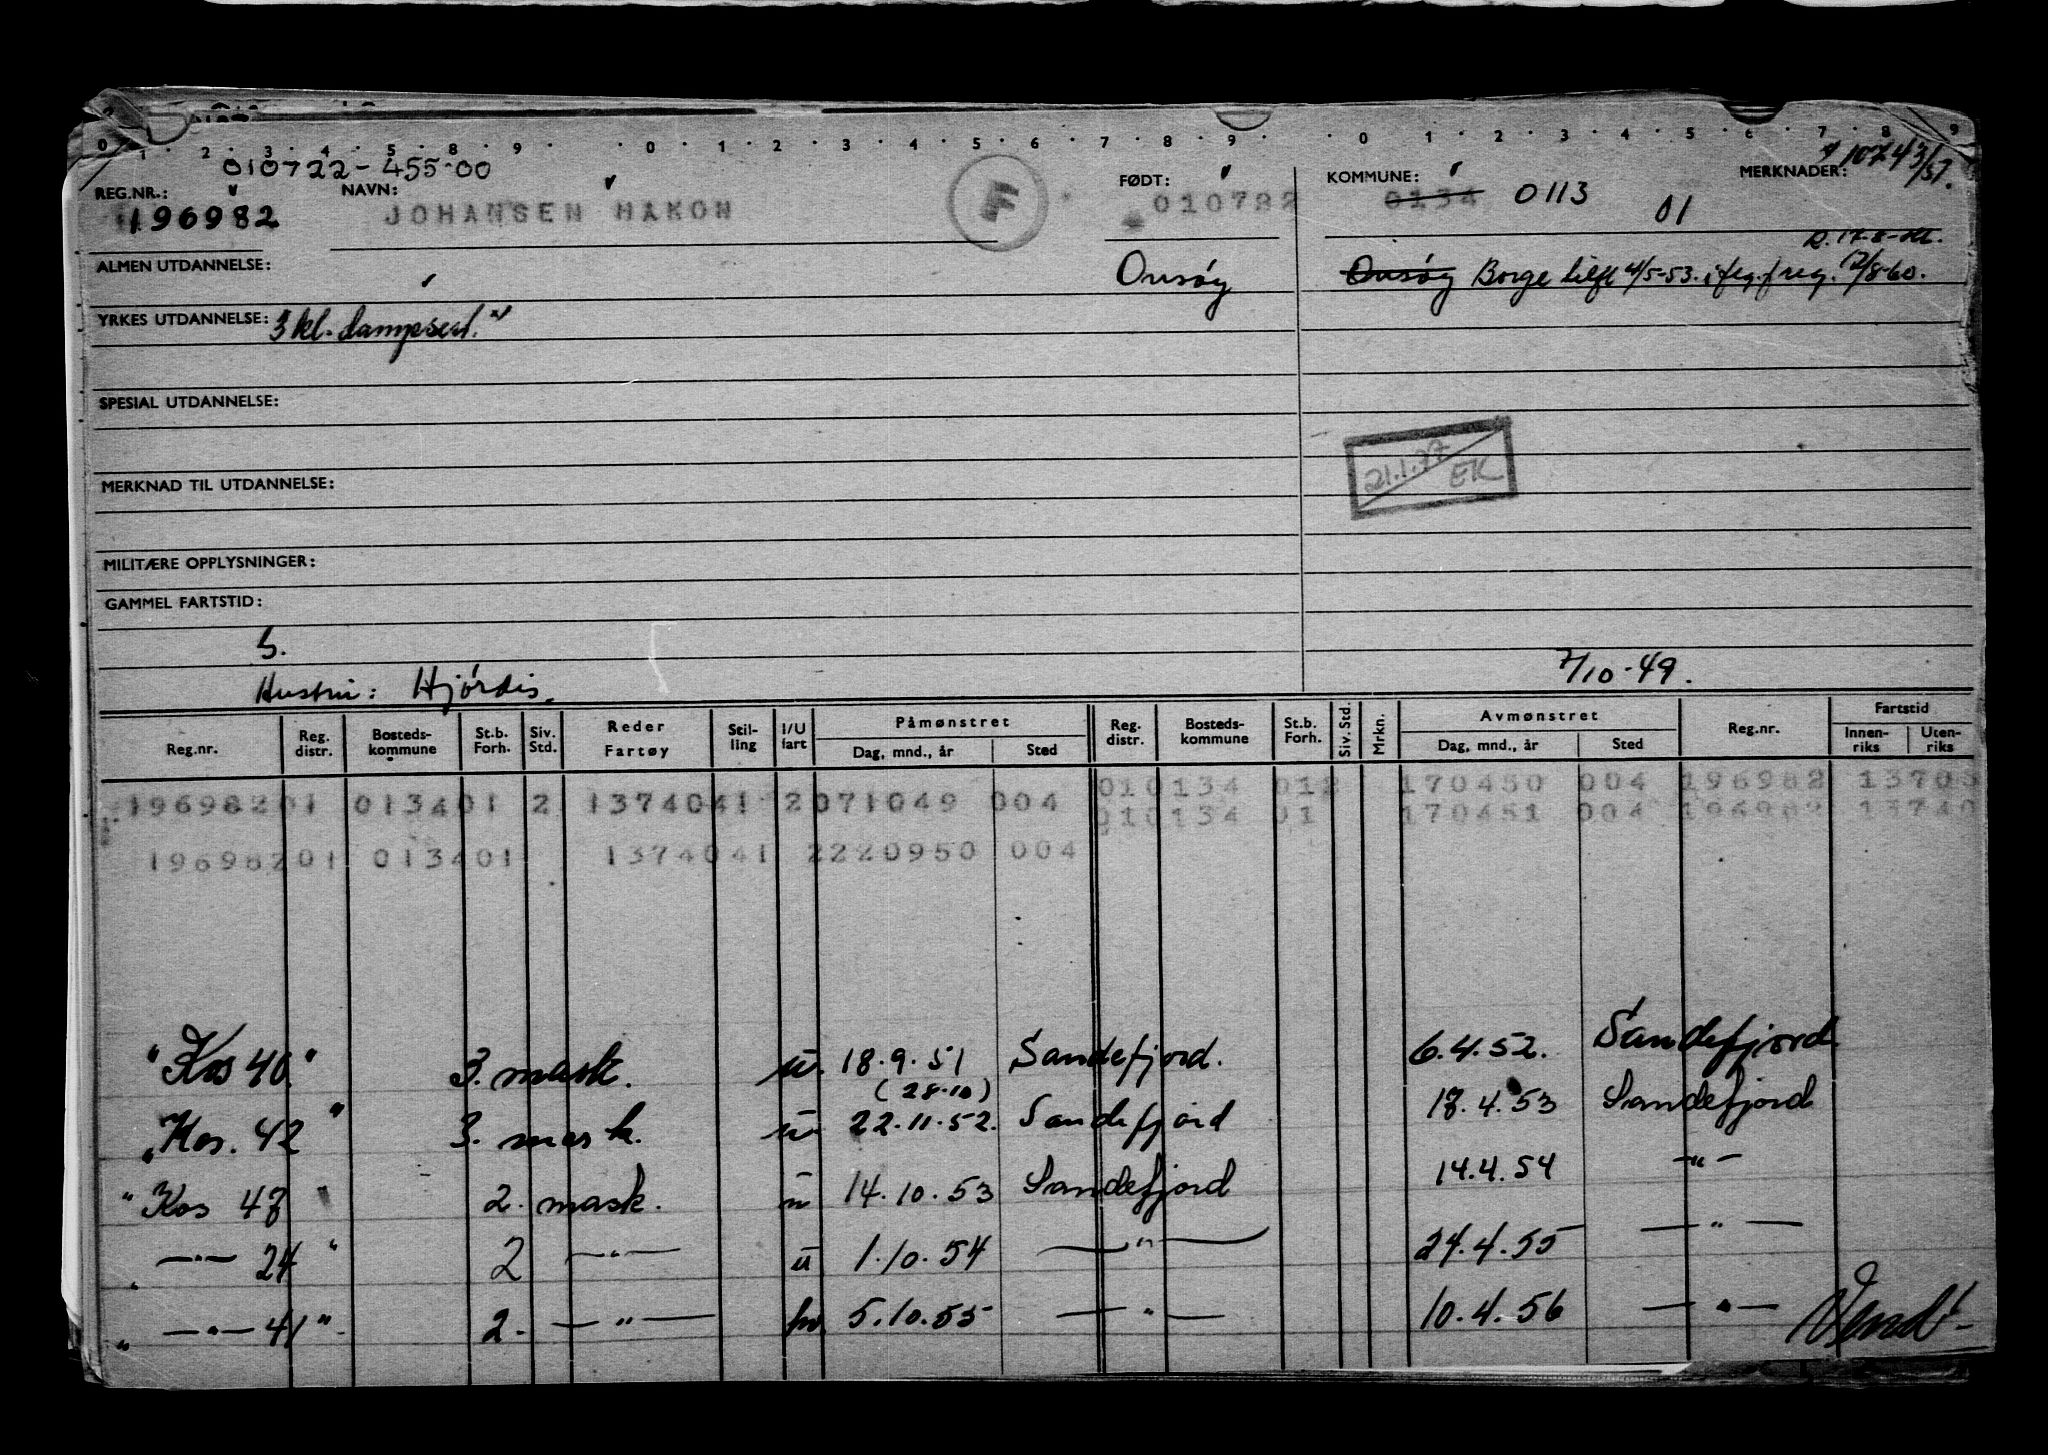 0 1 2 3 4 5 6 7 8 9 0 1 2 3 4 5 6 7 8 9 0 1 2 3 4 5 6 7 8 9
010722-455-00
10743/51.
REG.NR.: NAVN: FØDT: KOMMUNE: MERKNADER:
196982 JOHANSEN HAKON F 010722 0134 0113 01
ALMEN UTDANNELSE:
Onsøy Onsøy Borge tilfl 4/5-53. 12/8-60.
YRKES UTDANNELSE: 3 kl. dampsert.
SPESIAL UTDANNELSE:
21.1.77 EK
MERKNAD TIL UTDANNELSE:
MILITÆRE OPPLYSNINGER:
GAMMEL FARTSTID:
S.
Hustru: Hjørdis. 7/10-49.
Reg.nr. Reg. distr. Bosteds-kommune St.b. Forh. Siv. Std. Reder Fartøy Stil-ling I/U fart Påmønstret Dag, mnd., år Sted Reg. distr. Bosteds-kommune St.b. Forh. Siv. Std. Mrkn. Avmønstret Dag, mnd., år Sted Reg.nr. Fartstid Innen-riks Uten-riks
19698201 013401 2 1374041 2071049 004 010134 012 170450 004 196982 13705
010134 01 170451 004 196982 13740
19698201 013401 1374041 2220950 004
"Kos 40" 3. mask. u. 18.9.51 Sandefjord. 6.4.52. Sandefjord.
(28.10)
"Kos. 42" 3. mask. u 22.11.52. Sandefjord 18.4.53 Sandefjord
"Kos 47" 2. mask. u 14.10.53 Sandefjord 14.4.54 —"—
" —"— 24" 2 —"— u 1.10.54 —"— 24.4.55 —"—
" —"— 41" 2. —"— hv. 5.10.55 —"— 10.4.56 —"— Vend!